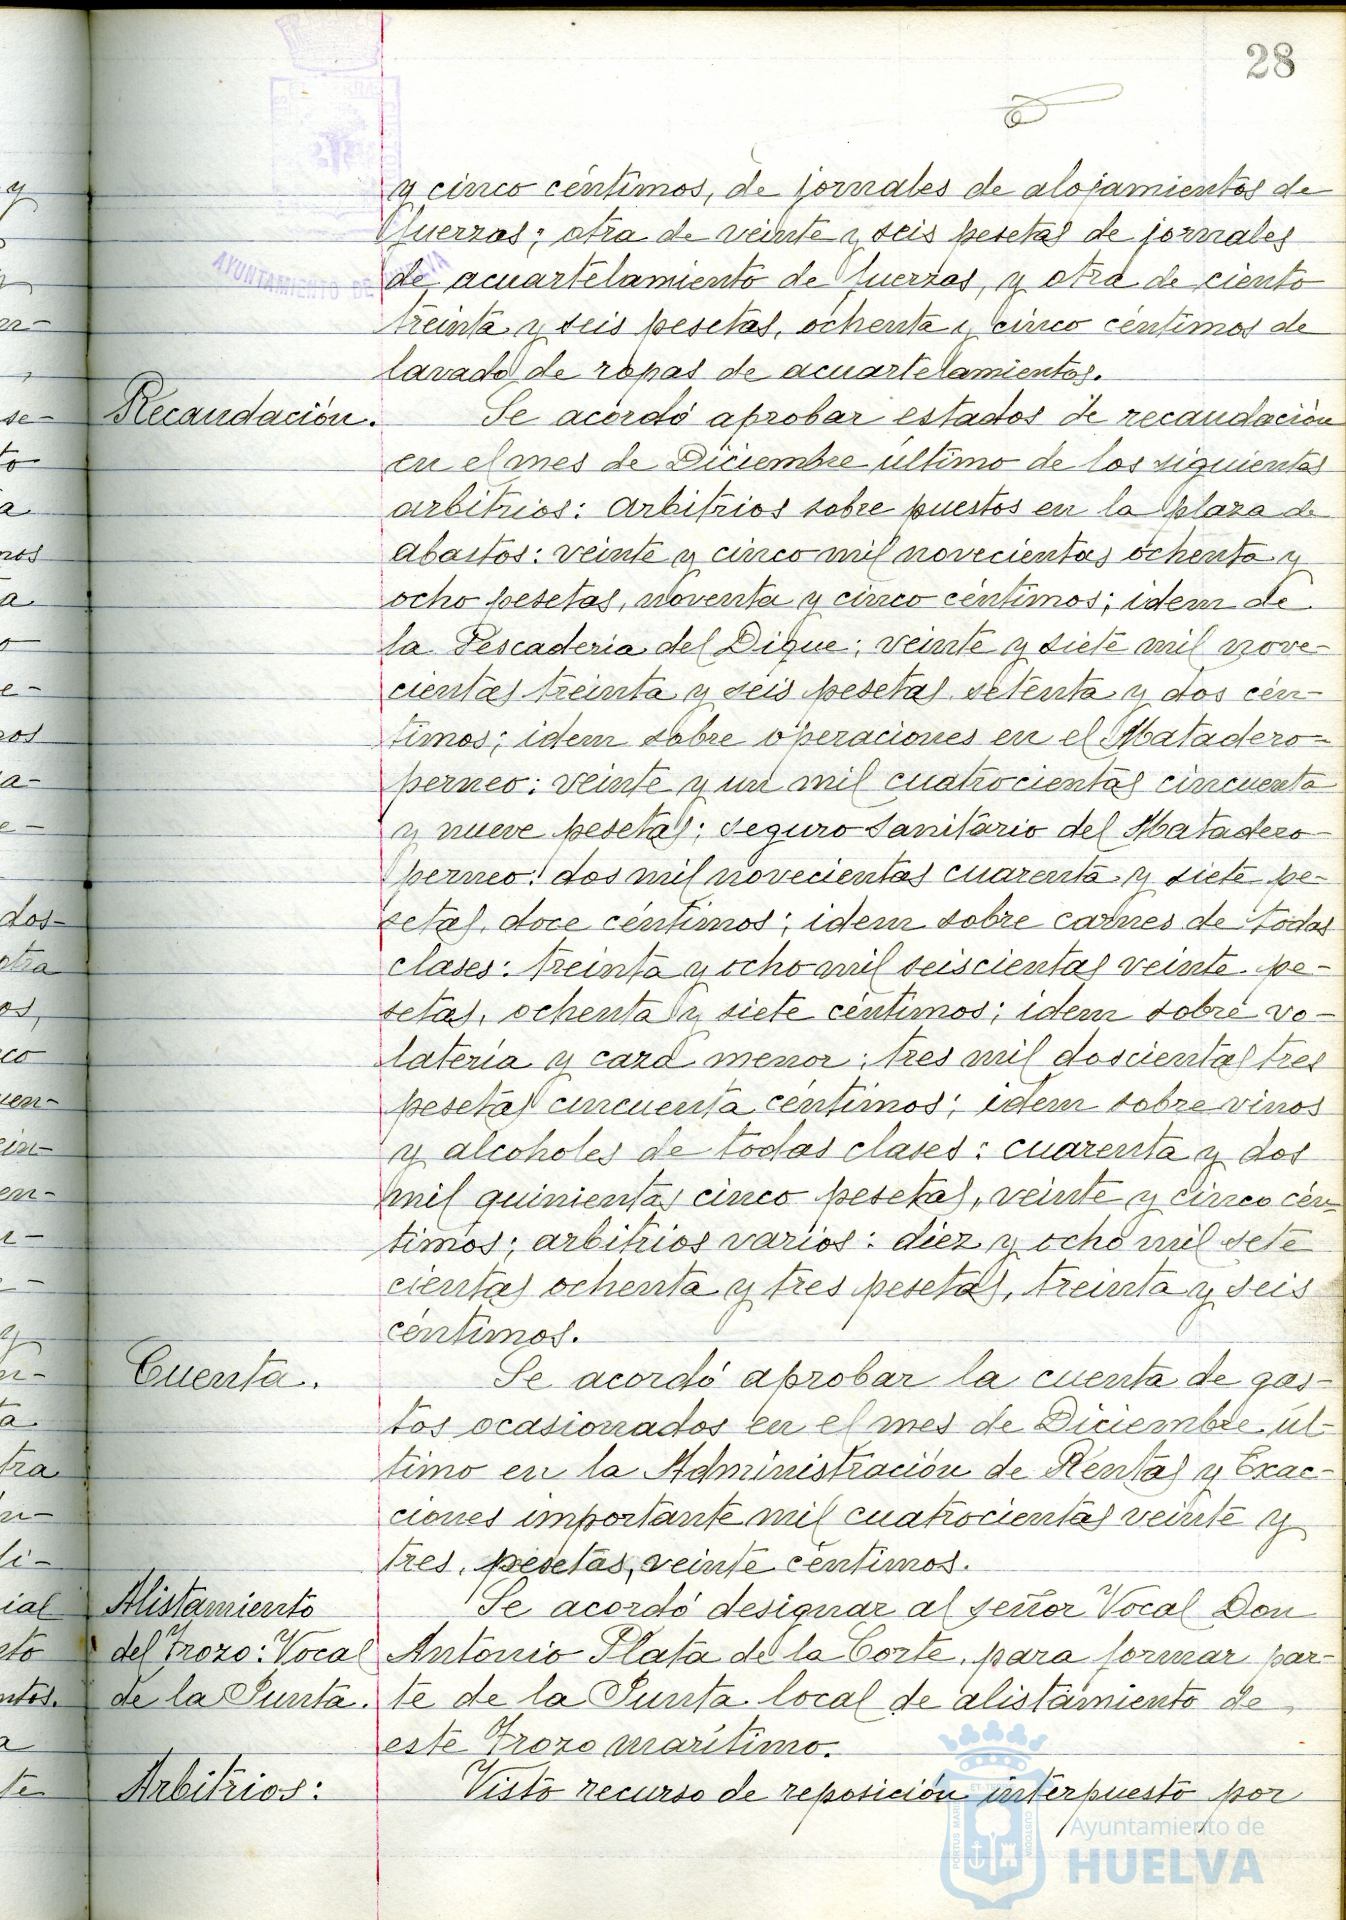 28
AYUNTAMIENTO DE HUELVA
y cinco céntimos, de jornales de alojamientos de
fuerzas; otra de veinte y seis pesetas de jornales
de acuartelamiento de fuerzas, y otra de ciento
treinta y seis pesetas, ochenta y cinco céntimos de
lavado de ropas de acuartelamientos.
Recaudación. Se acordó aprobar estados de recaudación
en el mes de Diciembre último de los siguientes
arbitrios: arbitrios sobre puestos en la plaza de
abastos: veinte y cinco mil novecientas ochenta y
ocho pesetas, noventa y cinco céntimos; idem de
la Pescadería del Dique; veinte y siete mil nove-
cientas treinta y seis pesetas setenta y dos cén-
timos; idem sobre operaciones en el Matadero-
perneo: veinte y un mil cuatrocientas cincuenta
y nueve pesetas; seguro sanitario del Matadero-
perneo: dos mil novecientas cuarenta y siete pe-
setas, doce céntimos; idem sobre carnes de todas
clases: treinta y ocho mil seiscientas veinte pe-
setas, ochenta y siete céntimos; idem sobre vo-
latería y caza menor: tres mil doscientas tres
pesetas cincuenta céntimos; idem sobre vinos
y alcoholes de todas clases: cuarenta y dos
mil quinientas cinco pesetas, veinte y cinco cén-
timos; arbitrios varios: diez y ocho mil sete
cientas ochenta y tres pesetas, treinta y seis
céntimos.
Cuenta. Se acordó aprobar la cuenta de gas-
tos ocasionados en el mes de Diciembre úl-
timo en la Administración de Rentas y Exac-
ciones importante mil cuatrocientas veinte y
tres, pesetas, veinte céntimos.
Alistamiento Se acordó designar al señor Vocal Don
del Trozo: Vocal Antonio Plata de la Corte, para formar par-
de la Junta. te de la Junta local de alistamiento de
este Trozo marítimo.
Arbitrios: Visto recurso de reposición interpuesto por
Ayuntamiento de
HUELVA